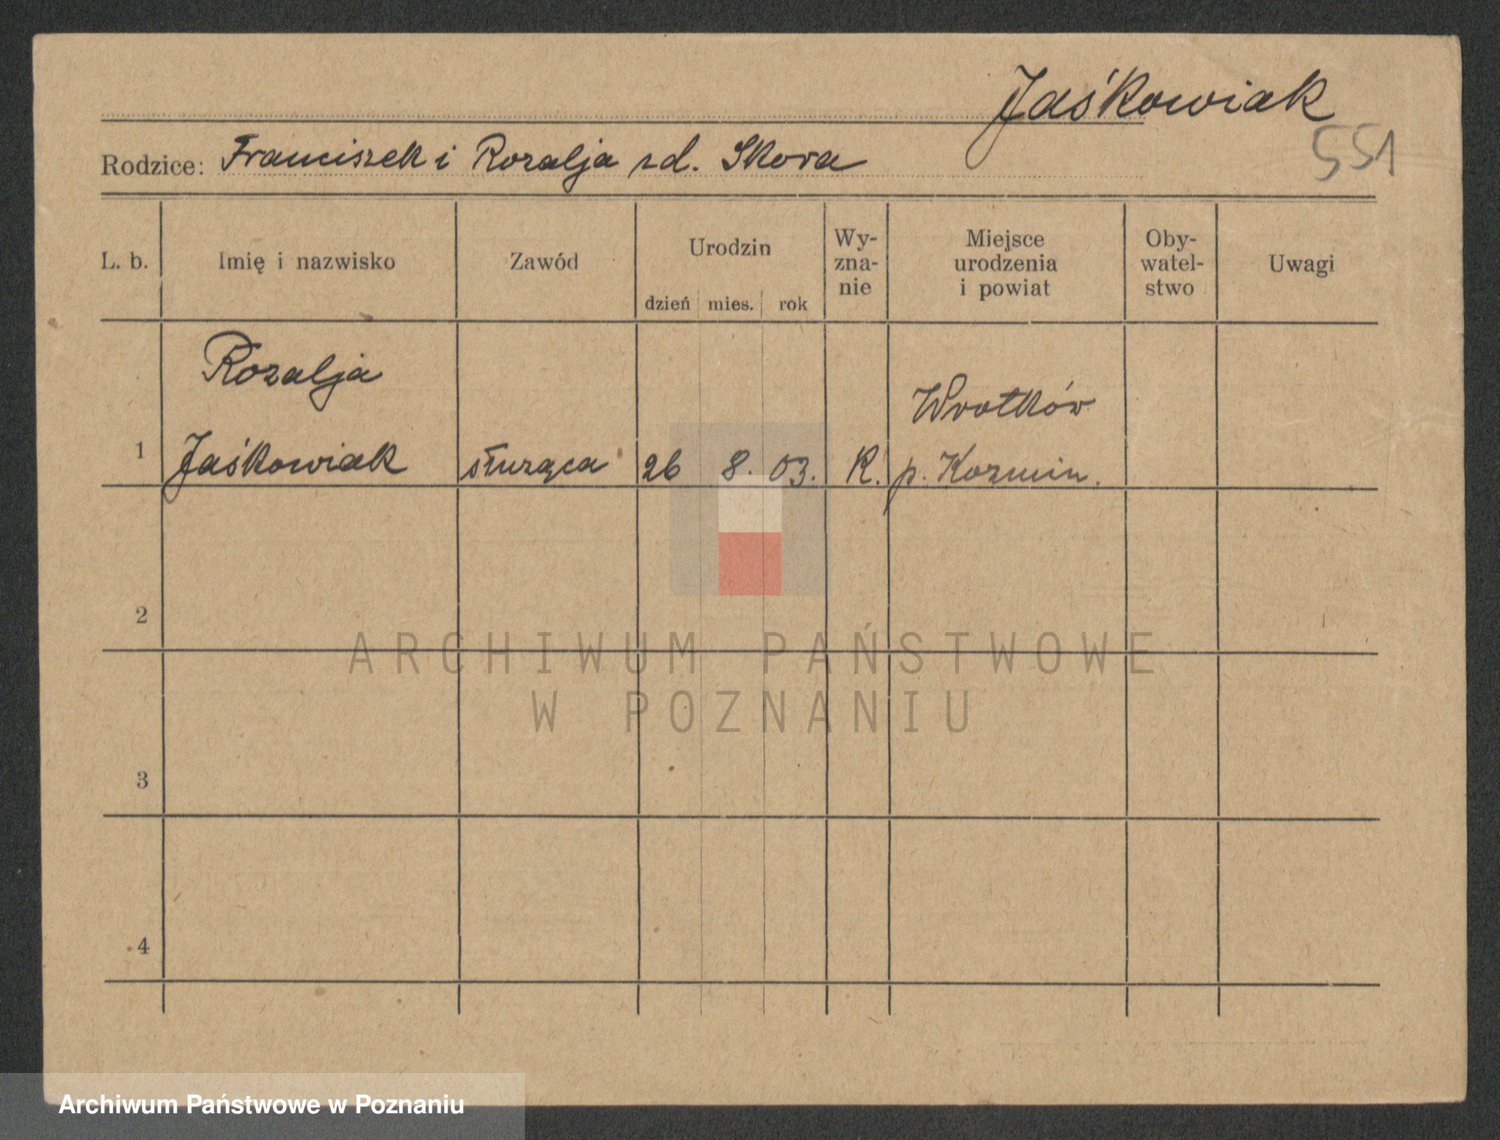 Jaśkowiak
551
Rodzice: Franciszek i Rozalja zd. Skora
L. b. Imię i nazwisko Zawód Urodzin dzień mies. rok Wy-zna-nie Miejsce urodzenia i powiat Oby-watel-stwo Uwagi
Rozalja Wrotków
1 Jaśkowiak służąca 26 8. 03. R. p. Kozmin.
2
ARCHIWUM PAŃSTWOWE
W POZNANIU
3
4
Archiwum Państwowe w Poznaniu